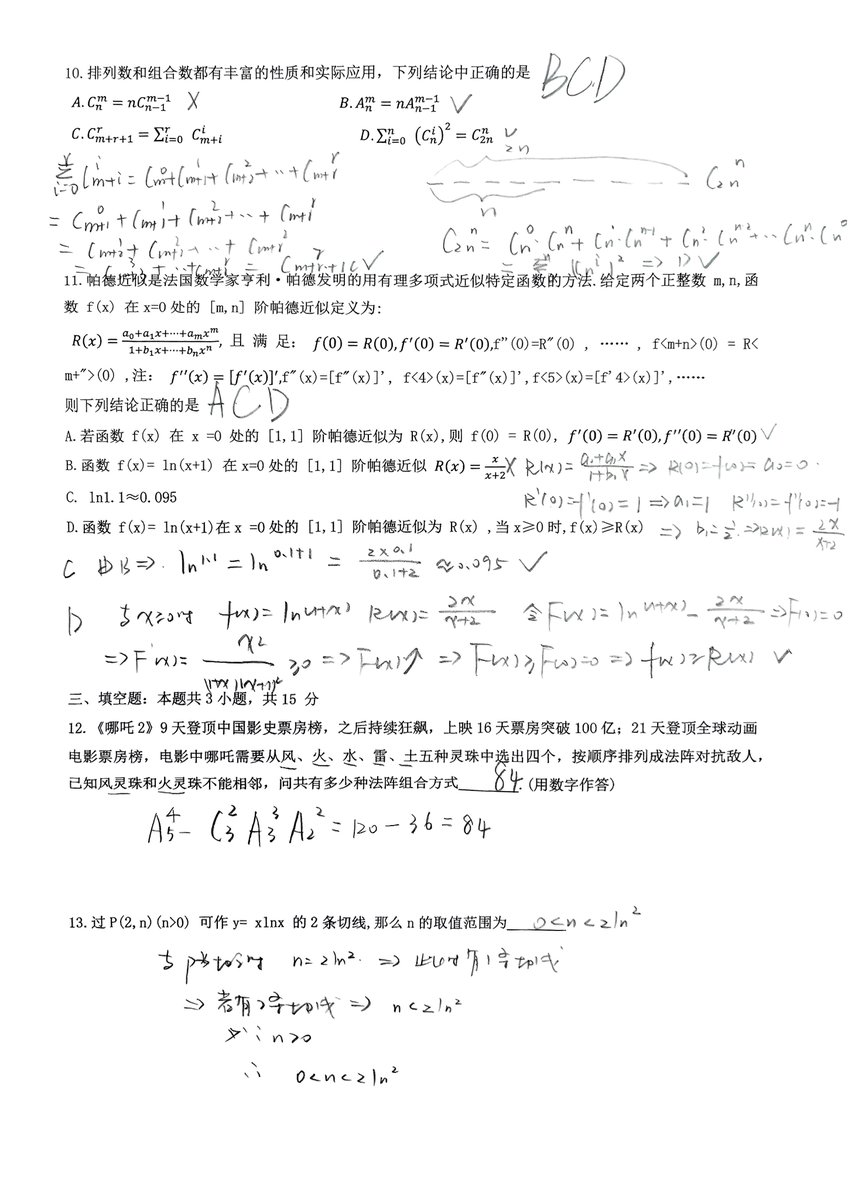 10. 排列数和组合数都有丰富的性质和实际应用，下列结论中正确的是 BCD
A. C_n^m = nC_{n-1}^{m-1} X B. A_n^m = nA_{n-1}^{m-1} √
C. C_{m+r+1}^r = ∑_{i=0}^r C_{m+i}^i D. ∑_{i=0}^n (C_n^i)^2 = C_{2n}^n √
∑_{i=0}^r C_{m+i}^i = C_m^0 + C_{m+1}^1 + C_{m+2}^2 + … + C_{m+r}^r
2n
n
C_{2n}^n
= C_{m+1}^0 + C_{m+1}^1 + C_{m+2}^2 + … + C_{m+r}^r
C_{2n}^n = C_n^0·C_n^n + C_n^1·C_n^{n-1} + C_n^2·C_n^{n-2} + … C_n^n·C_n^0
= C_{m+2}^1 + C_{m+2}^2 + … + C_{m+r}^r
= ∑ (C_n^i)^2 => D √
11. 帕德近似是法国数学家亨利·帕德发明的用有理多项式近似特定函数的方法.给定两个正整数 m,n,函
数 f(x) 在 x=0 处的 [m,n] 阶帕德近似定义为:
R(x) = \frac{a_0+a_1x+⋯+a_mx^m}{1+b_1x+⋯+b_nx^n}, 且 满 足: f(0) = R(0), f′(0) = R′(0),f"(0)=R"(0) , …… , f<m+n>(0) = R<
m+">(0) ,注: f′′(x) = [f′(x)]′,f"(x)=[f"(x)]', f<4>(x)=[f"(x)]',f<5>(x)=[f'4>(x)]',……
则下列结论正确的是 ACD
A.若函数 f(x) 在 x =0 处的 [1,1] 阶帕德近似为 R(x),则 f(0) = R(0), f′(0) = R′(0),f′′(0) = R′′(0) √
B.函数 f(x)= ln(x+1) 在 x=0 处的 [1,1] 阶帕德近似 R(x) = \frac{x}{x+2} X R(x) = \frac{a_0+a_1x}{1+b_1x} => R(0)=f(0)= a_0=0
C. ln1.1≈0.095 R'(0)=f'(0)=1 => a_1=1 R''(0)=f''(0)=-1
D.函数 f(x)= ln(x+1)在 x =0 处的 [1,1] 阶帕德近似为 R(x) ,当 x≥0 时,f(x)≥R(x) => b_1=\frac{1}{2} => R(x)=\frac{2x}{x+2}
C 由B => ln^{1.1} = ln^{0.1+1} = \frac{2×0.1}{0.1+2} ≈0.095 √
D 当x≥0时 f(x)=ln^{(1+x)} R(x)=\frac{2x}{x+2} 令F(x)=ln^{(1+x)}-\frac{2x}{x+2} => F(0)=0
=> F'(x)= \frac{x^2}{(1+x)(x+2)^2} ≥0 => F(x)↑ => F(x)≥F(0)=0 => f(x)≥R(x) √
三、填空题：本题共 3 小题，共 15 分
12.《哪吒 2》9 天登顶中国影史票房榜，之后持续狂飙，上映 16 天票房突破 100 亿；21 天登顶全球动画
电影票房榜，电影中哪吒需要从风、火、水、雷、土五种灵珠中选出四个，按顺序排列成法阵对抗敌人，
已知风灵珠和火灵珠不能相邻，问共有多少种法阵组合方式 84 .(用数字作答)
A_5^4 - C_3^2 A_3^3 A_2^2 = 120 - 36 = 84
13.过 P(2,n)(n>0) 可作 y= xlnx 的 2 条切线,那么 n 的取值范围为 0<n<2ln^2
当P为切点时 n=2ln^2. => 此时有1条切线
=> 若有2条切线 => n<2ln^2
又∵n>0
∴ 0<n<2ln^2